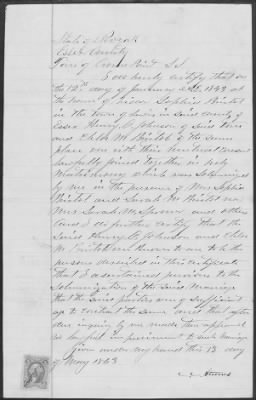 State of
Essex County
Town of Crown Point S.S.
I do hereby certify that on
the 12th day of January A.D. 1843 at
the house of Sophia Bristol
in the town of Lewis in said county of
Essex Henry D. Johnson of said town
and Chloe M. Bristol of the same
place were with their mutual consent
lawfully joined together in holy
Matrimony which was solemnized
by me in the presence of Mrs Sophia
Bristol and Sarah M. Bristol now
Mrs Sarah M. and others
and I do further certify that the
said Henry D. Johnson and Chloe
M. Bristol known to me to be the
persons described in this certificate
that I ascertained previous to the
solemnization of the said Marriage
that the said parties were of sufficient
age to contract the same and that after
due inquiry by me made there appeared
no lawful impediment to such marriage
Given under my hand this 13 day
of May 1863